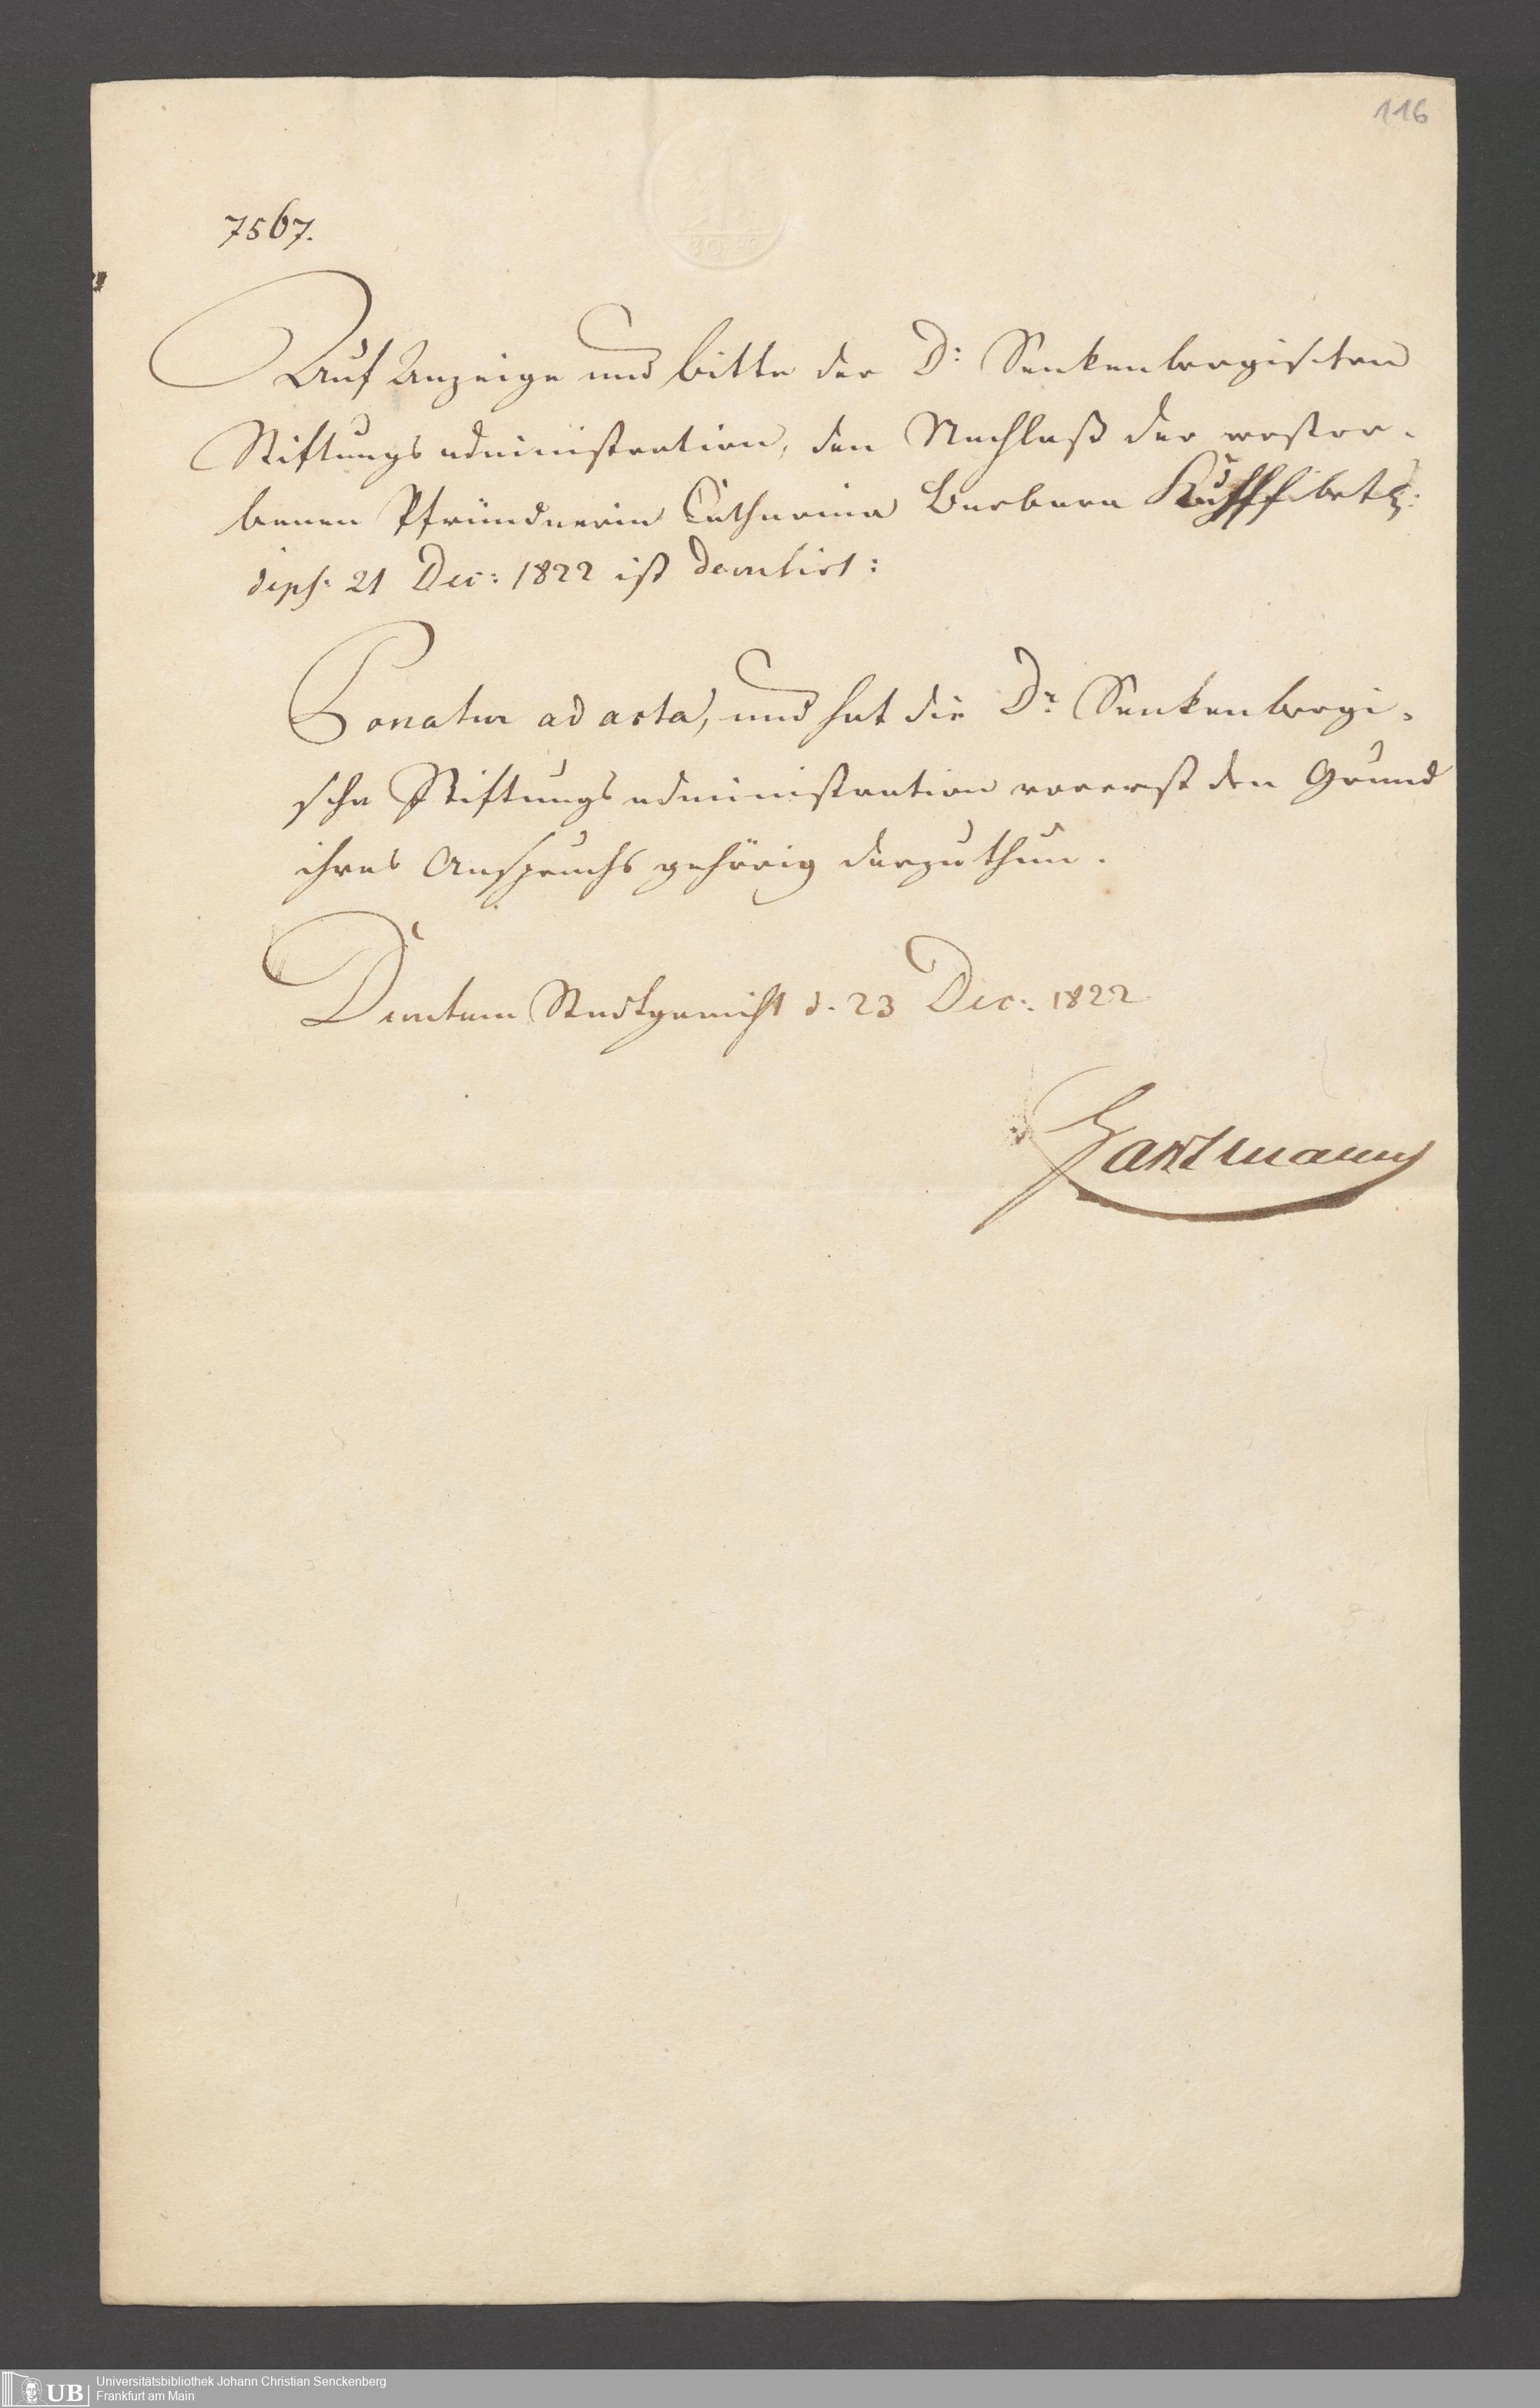 116
7567.
Auf Anzeige und Bitte der Dr: Senkenbergischen
Stiftungsadministration, den Nachlaß der verstor-
benen Pfründnerin Catharina Barbara betr:
diss: 21 Dec: 1822 ist decretirt:
Ponatur ad acta, und hat die Dr. Senkenbergi-
sche Stiftungsadministration vorerst den Grund
ihres Anspruchs gehörig darzuthun.
Decretum Stadtgericht d. 23 Dec: 1822
Hartmann
UB
Universitätsbibliothek Johann Christian Senckenberg
Frankfurt am Main